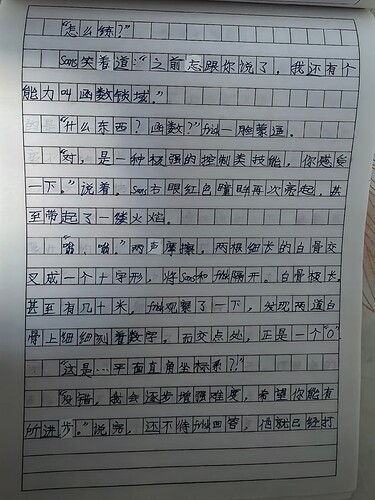 "怎么练?"
Sans笑着道:"之前忘跟你说了,我还有个
能力叫函数领域。"
"什么东西?函数?"frisk一脸蒙逼。
"对,是一种极强的控制类技能,你感受
一下。"说着,Sans右眼红色瞳眸再次亮起,甚
至带起了一缕火焰。
"嗡、嗡。"两声摩擦,两根细长的白骨交
叉成一个十字形,将Sans和frisk隔开。白骨极长,
甚至有几十米,frisk观察了一下,发现两道白
骨上细细刻着数字,而交点处,正是一个"0"。
"这是…平面直角坐标系?!"
"没错,我会逐步增强难度,希望你能有
所进步。"说完,还不待frisk回答,他就已经打